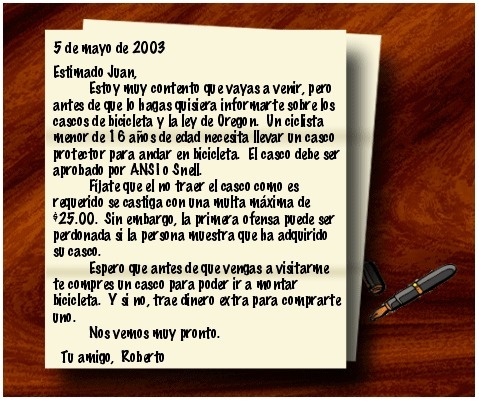 5 de mayo de 2003
Estimado Juan,
Estoy muy contento que vayas a venir, pero
antes de que lo hagas quisiera informarte sobre los
cascos de bicicleta y la ley de Oregon. Un ciclista
menor de 16 años de edad necesita llevar un casco
protector para andar en bicicleta. El casco debe ser
aprobado por ANSI o Snell.
Fíjate que el no traer el casco como es
requerido se castiga con una multa máxima de
$25.00. Sin embargo, la primera ofensa puede ser
perdonada si la persona muestra que ha adquirido
su casco.
Espero que antes de que vengas a visitarme
te compres un casco para poder ir a montar
bicicleta. Y si no, trae dinero extra para comprarte
uno.
Nos vemos muy pronto.
Tu amigo, Roberto